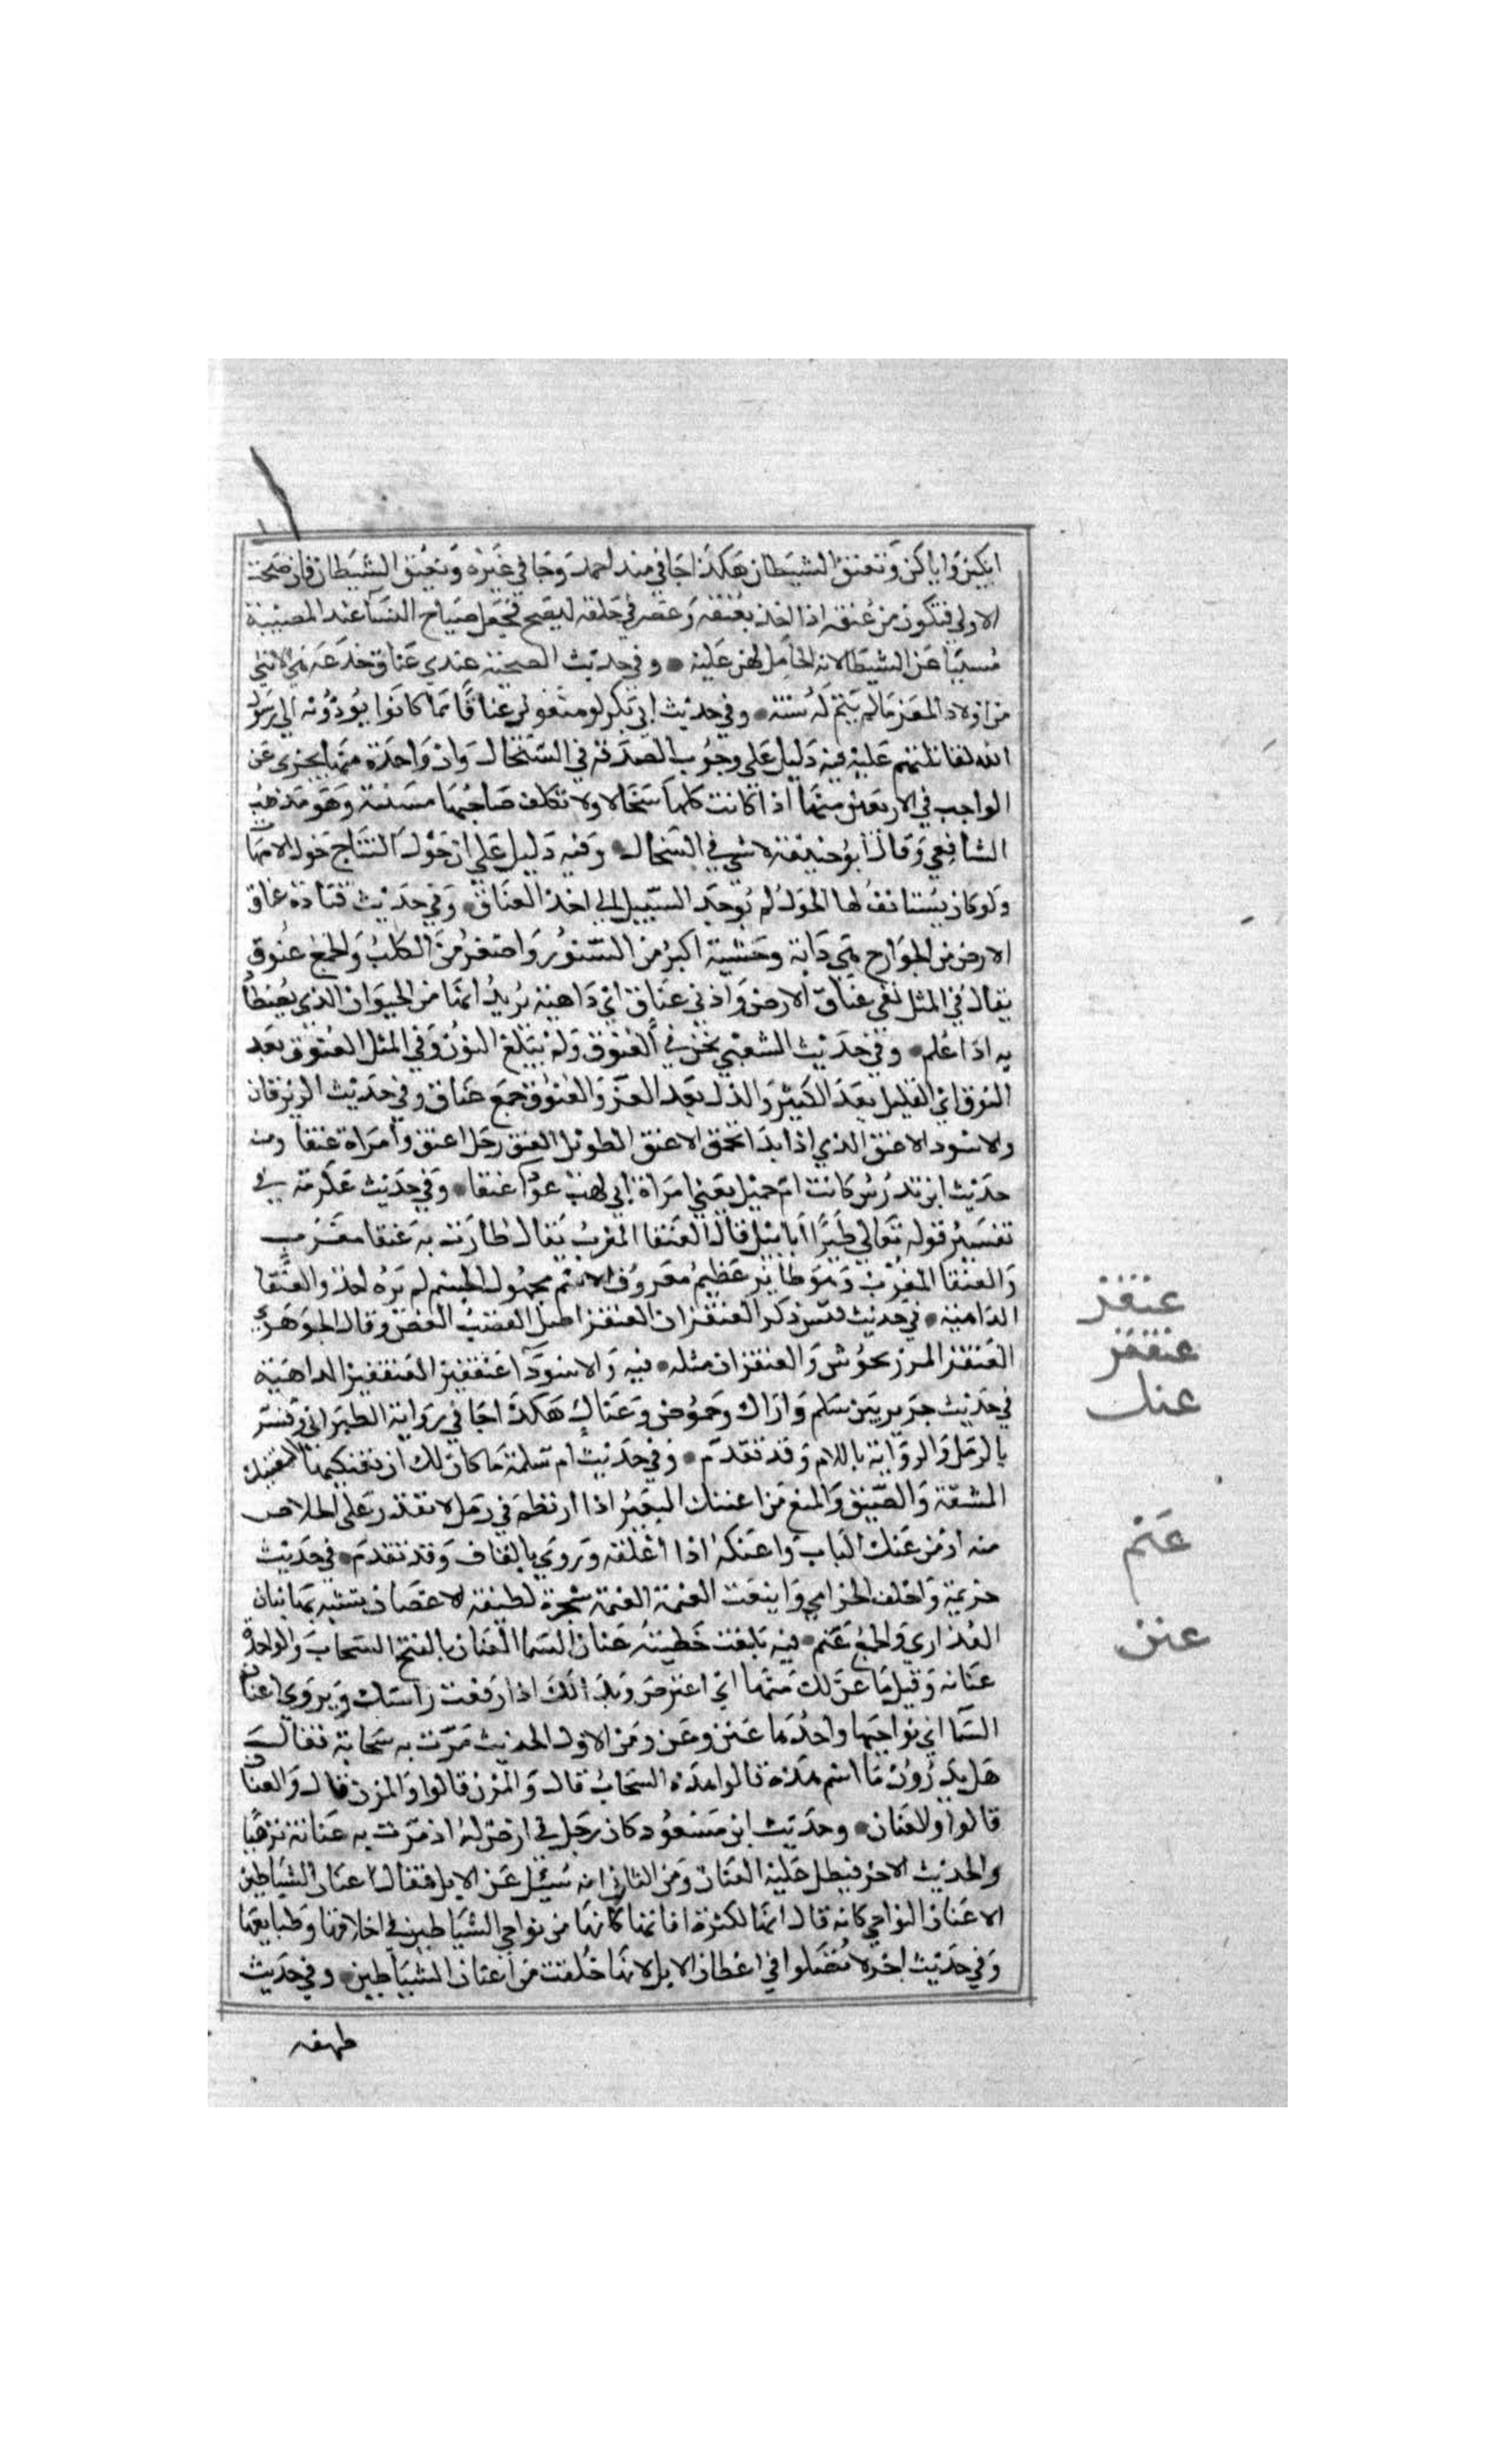 ابكين واياكن وتعنق الشيطان هكذا جا في مسند احمد وجا في غيره ونعيق الشيطان فان صحت
الاولى فتكون من عنقه اذا اخذ بعنقه وعصر في حلقه ليصيح فجعل صياح النسا عند المصيبة
مسببا عن الشيطان لانه الحامل لهن عليه وفي حديث الضحية عندي عناق جذعة هي الانثى
من اولاد المعز ما لم يتم له سنة وفي حديث ابي بكر لو منعوني عناقا مما كانوا يؤدونه الى رسول
الله لقاتلتهم عليه فيه دليل على وجوب الصدقة في السخال وان واحدة منها تجزي عن
الواجب في الاربعين منها اذا كانت كلها سخالا ولا تكلف صاحبها مسنة وهو مذهب
الشافعي وقال ابو حنيفة لا شي في السخال وفيه دليل على ان حول النتاج حول الامهات
ولو كان يستانف لها الحول لم يوجد السبيل الى اخذ العناق وفي حديث قتادة عناق
الارض من الجوارح هي دابة وحشية اكبر من السنور واصغر من الكلب والجمع عنوق
يقال في المثل لقي عناق الارض واذني عناق اي داهية يريد انها من الحيوان الذي يصطاد
به اذا علم وفي حديث الشعبي نحن في العنوق ولم نبلغ النوق وفي المثل العنوق بعد
النوق اي القليل بعد الكثير والذل بعد العز والعنوق جمع عناق وفي حديث الزبرقان
والاسود الاعنق الذي اذا بدا تحمق الاعنق الطويل العنق رجل اعنق وامراة عنقا ومنه
حديث ابن تدرس كانت ام جميل يعني امراة ابي لهب عورا عنقا وفي حديث عكرمة في
تفسير قوله تعالى طيرا ابابيل قال العنقا المغرب يقال طارت به عنقا مغرب
والعنقا المغرب وهو طاير عظيم معروف الاسم مجهول الجسم لم يره احد والعنقا
الداهية في حديث قس ذكر العنقزان العنقز اصل القصب الغض وقال الجوهري
العنقز المرزنجوش والعنقزان مثله فيه والاسودا عنقفيز العنقفيز الداهية
في حديث جرير بين سلم واراك وحموض وعناك هكذا جا في رواية الطبراني وفسر
بالرمل والرواية باللام وقد تقدم وفي حديث ام سلمة ما كان لك ان تعنكيها التعنيك
المشقة والضيق والمنع من اعتنك البعير اذا ارتطم في رمل لا يقدر على الخلاص
منه او من عنك الباب واعنكه اذا اغلقه وروي بالقاف وقد تقدم في حديث
خزيمة واخلف الخزامي واينعت العنمة العنمة شجرة لطيفة الاغصان يشبه بها بنان
العذارى والجمع عنم فيه بلغت خطيئته عنان السما العنان بالفتح السحاب والواحدة
عنانة وقيل ما عن لك منها اي اعترض وبدا لك اذا رفعت راسك ويروى اعنان
السما اي نواحيها واحدها عنن وعن ومن الاول الحديث مرت به سحابة فقال
هل تدرون ما اسم هذه قالوا هذه السحاب قال والمزن قالوا والمزن قال والعنان
قالوا والعنان وحديث ابن مسعود كان رجل في ارض له اذ مرت به عنانة ترهيا
والحديث الاخر فيطل عليه العنان ومن الثاني انه سئل عن الابل فقال اعنان الشياطين
الاعنان النواحي كانه قال انها لكثرة افاتها كانها من نواحي الشياطين في اخلاقها وطبايعها
وفي حديث اخر لا تصلوا في اعطان الابل لانها خلقت من اعنان الشياطين وفي حديث
طهفه
عنقز
عنقفز
عنك
عنم
عنن